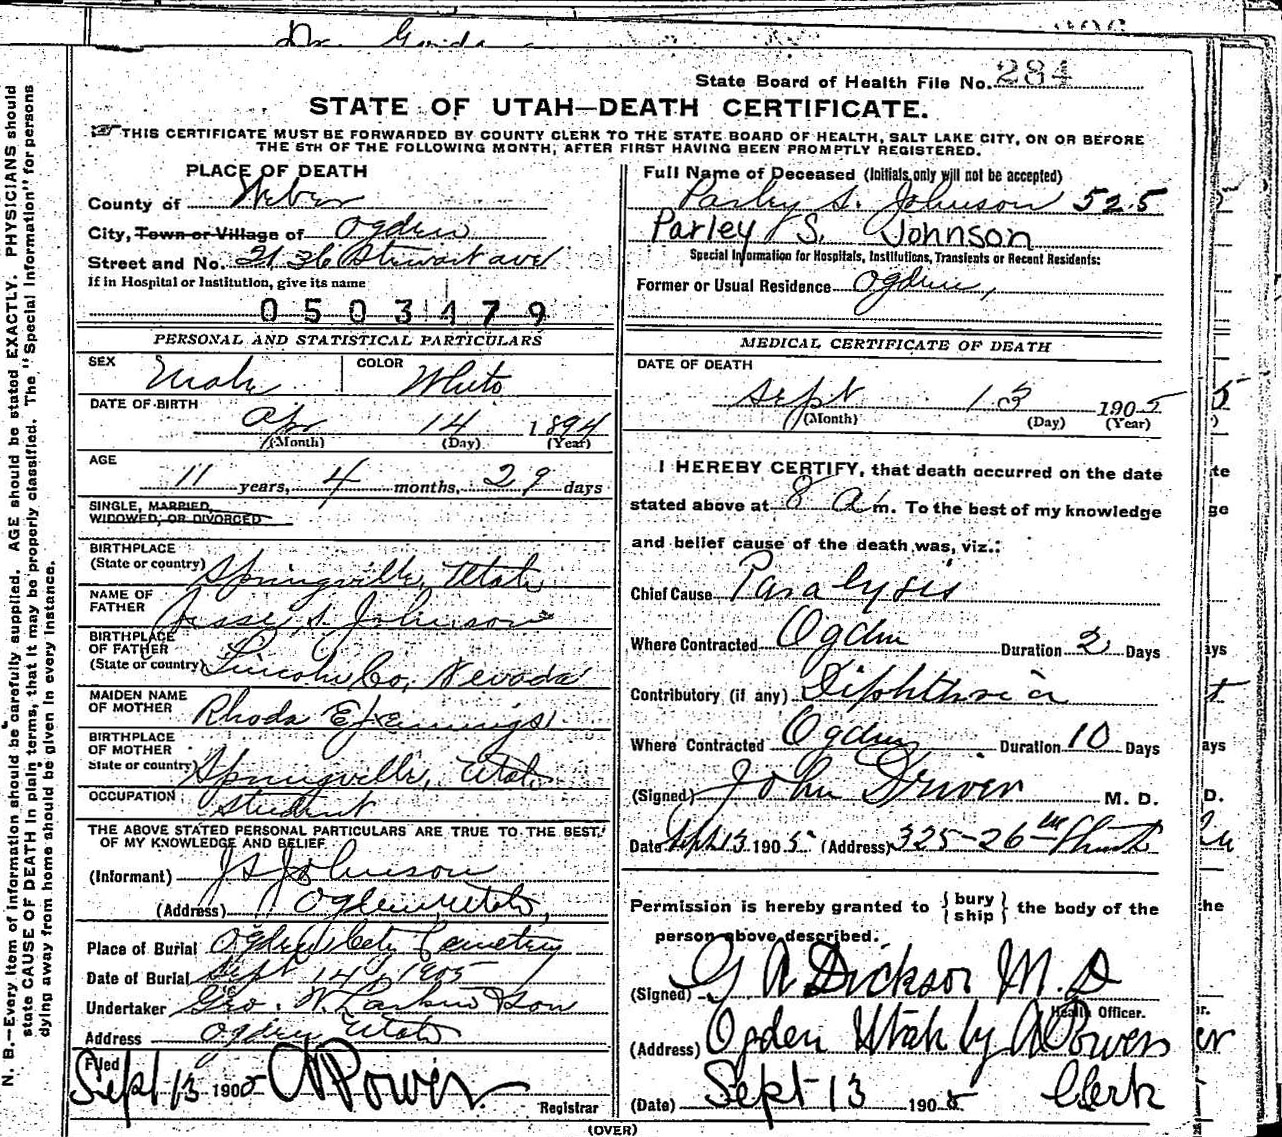 Dr. Gorda
State Board of Health File No. 284
STATE OF UTAH—DEATH CERTIFICATE.
THIS CERTIFICATE MUST BE FORWARDED BY COUNTY CLERK TO THE STATE BOARD OF HEALTH, SALT LAKE CITY, ON OR BEFORE
THE 5TH OF THE FOLLOWING MONTH, AFTER FIRST HAVING BEEN PROMPTLY REGISTERED.
N. B.—Every item of information should be carefully supplied. AGE should be stated EXACTLY. PHYSICIANS should
state CAUSE OF DEATH in plain terms, that it may be properly classified. The "Special Information" for persons
dying away from home should be given in every instance.
PLACE OF DEATH
County of Weber
City, Town or Village of Ogden
Street and No. 2136 Stewart ave
If in Hospital or Institution, give its name
0503179
PERSONAL AND STATISTICAL PARTICULARS
SEX Male COLOR White
DATE OF BIRTH
Apr 14 1894
(Month) (Day) (Year)
AGE
11 years, 4 months, 29 days
SINGLE, MARRIED,
WIDOWED, OR DIVORCED
BIRTHPLACE
(State or country) Springville, Utah
NAME OF
FATHER Jesse S. Johnson
BIRTHPLACE
OF FATHER
(State or country) Lincoln Co, Nevada
MAIDEN NAME
OF MOTHER Rhoda E Jennings
BIRTHPLACE
OF MOTHER
State or country) Springville, Utah
OCCUPATION Student
THE ABOVE STATED PERSONAL PARTICULARS ARE TRUE TO THE BEST
OF MY KNOWLEDGE AND BELIEF
(Informant) J S Johnson
(Address) Ogden, Utah,
Place of Burial Ogden City Cemetery
Date of Burial Sept 14th, 1905
Undertaker Geo. W. Larkin & Son
Address Ogden Utah
Filed
Sept 13 1905 A Power
Registrar
Full Name of Deceased (Initials only will not be accepted)
Parley S. Johnson 525
Parley S. Johnson
Special Information for Hospitals, Institutions, Transients or Recent Residents:
Former or Usual Residence Ogden,
MEDICAL CERTIFICATE OF DEATH
DATE OF DEATH
Sept 13 1905
(Month) (Day) (Year)
I HEREBY CERTIFY, that death occurred on the date
stated above at 8 a m. To the best of my knowledge
and belief cause of the death was, viz.:
Chief Cause Paralysis
Where Contracted Ogden Duration 2 Days
Contributory (if any) Diphtheria
Where Contracted Ogden Duration 10 Days
(Signed) John Driver M. D.
Date Sept 13 1905 (Address) 325-26th
Permission is hereby granted to {bury
ship} the body of the
person above described.
(Signed) G A Dickson M. D
Health Officer.
(Address) Ogden Utah by A Power
(Date) Sept 13 1905 Clerk
(OVER)